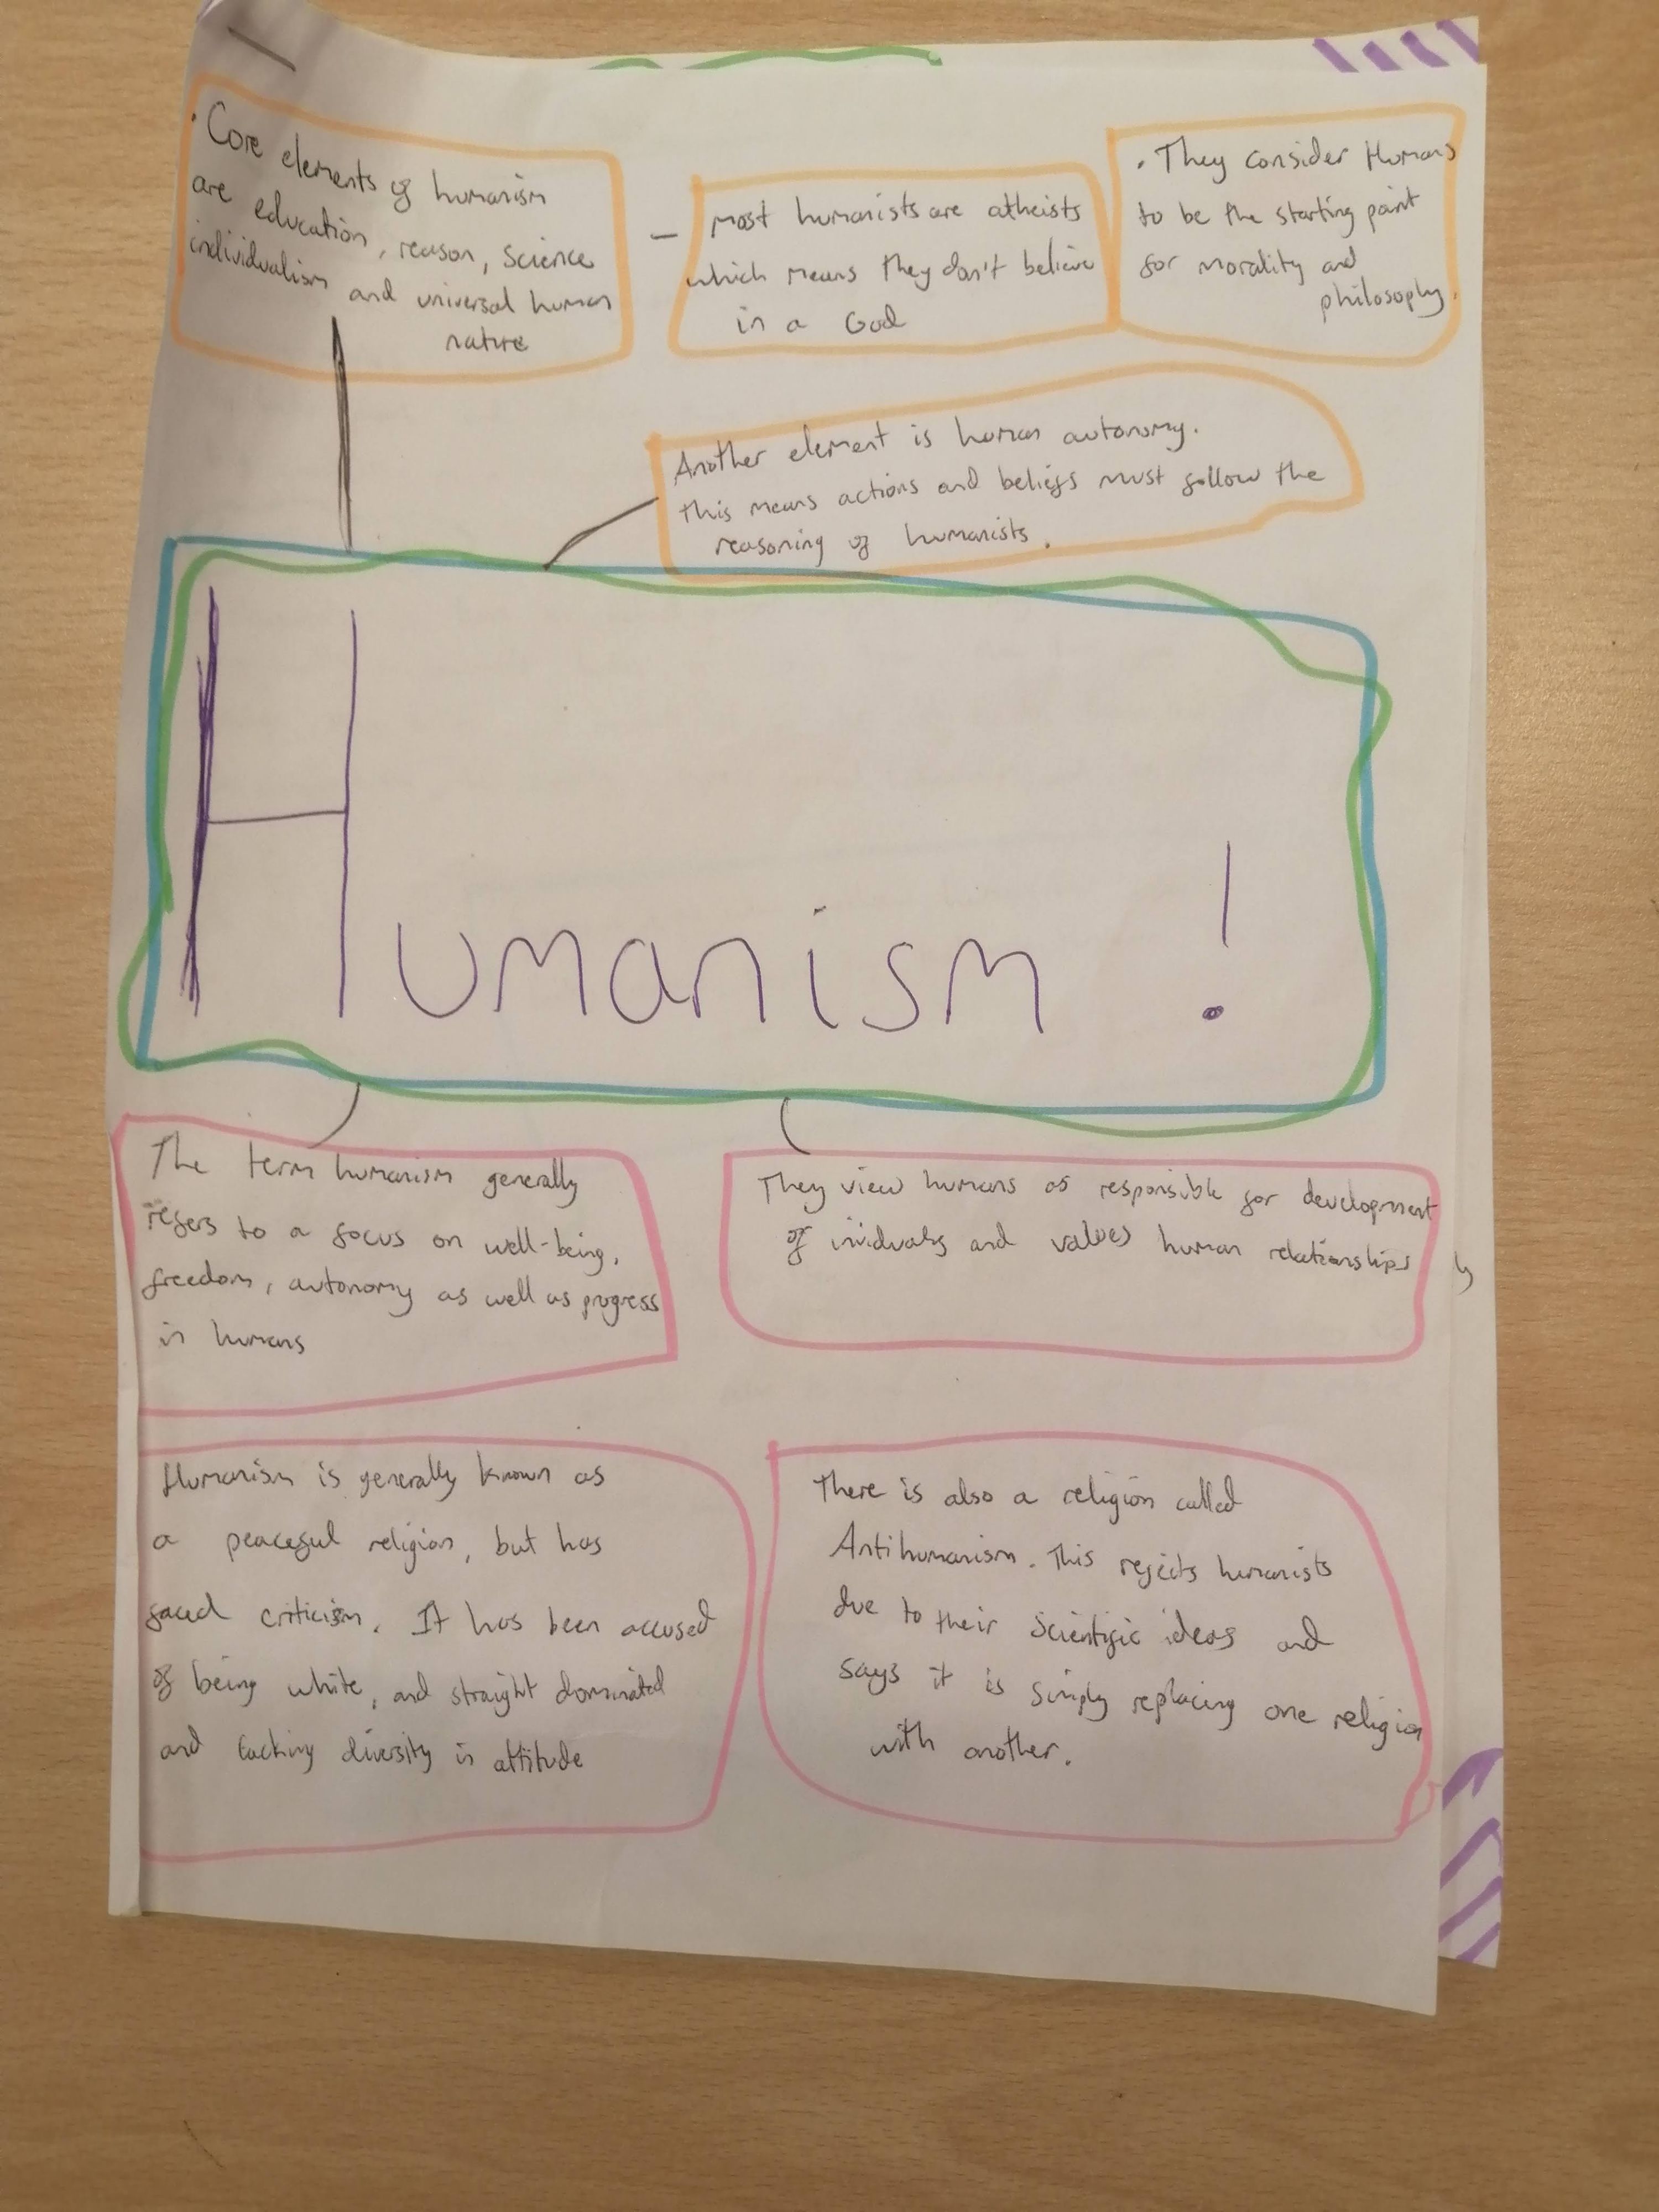 · Core elements of humanism
are education, reason, science
individualism and universal human
nature
– most humanists are atheists
which means they don't believe
in a God
· They consider Humans
to be the starting point
for morality and
philosophy.
Another element is human autonomy.
this means actions and beliefs must follow the
reasoning of humanists.
Humanism !
The term humanism generally
refers to a focus on well-being,
freedom, autonomy as well as progress
in humans
They view humans as responsible for development
of and values human relationships
Humanism is generally known as
a peaceful religion, but has
faced criticism. It has been accused
of being white, and straight dominated
and lacking diversity in attitude
There is also a religion called
Antihumanism. This rejects humanists
due to their scientific ideas and
says it is simply replacing one religion
with another.